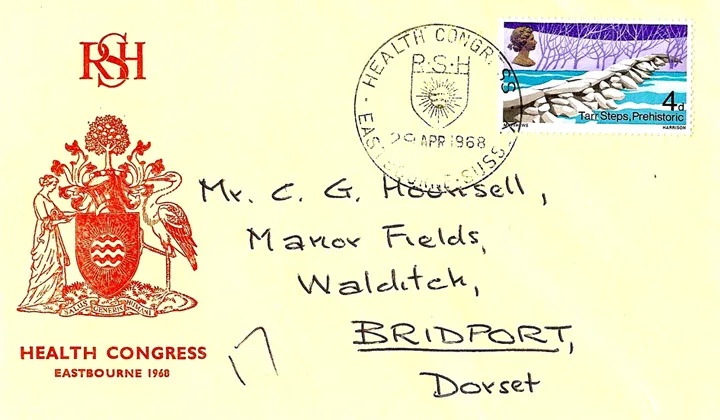 RSH
HEALTH CONGRESS
R·S·H
29 APR 1968
EASTBOURNE·SUSSEX
4d
Tarr Steps, Prehistoric
HARRISON
Mr. C. G. Hounsell,
Manor Fields,
Walditch,
BRIDPORT,
Dorset
17
SALUS GENERIS HUMANI
HEALTH CONGRESS
EASTBOURNE 1968